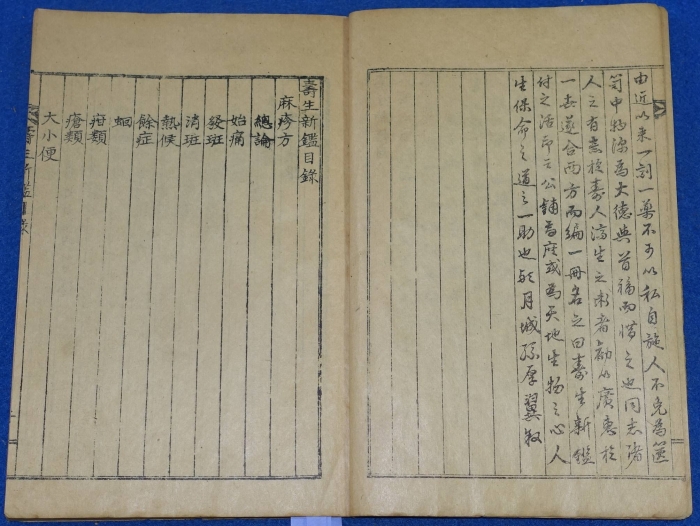 由近以來一剳一藥不可以私自施人不免為篋
笥中物深為大德與首禍而憐之也同志諸
人之有意於壽人濟生之術者勸以廣惠於
一世遂合兩方而編一冊名之曰壽生新鑑
付之活印公鋪為庶或為天地生物之心人
生保命之道之一助也 月城孫厚翼敍
壽生新鑑目錄
麻疹方
總論
始痛
發斑
消斑
熱候
餘症
蛔
疳類
瘡類
大小便
壽生新鑑目錄